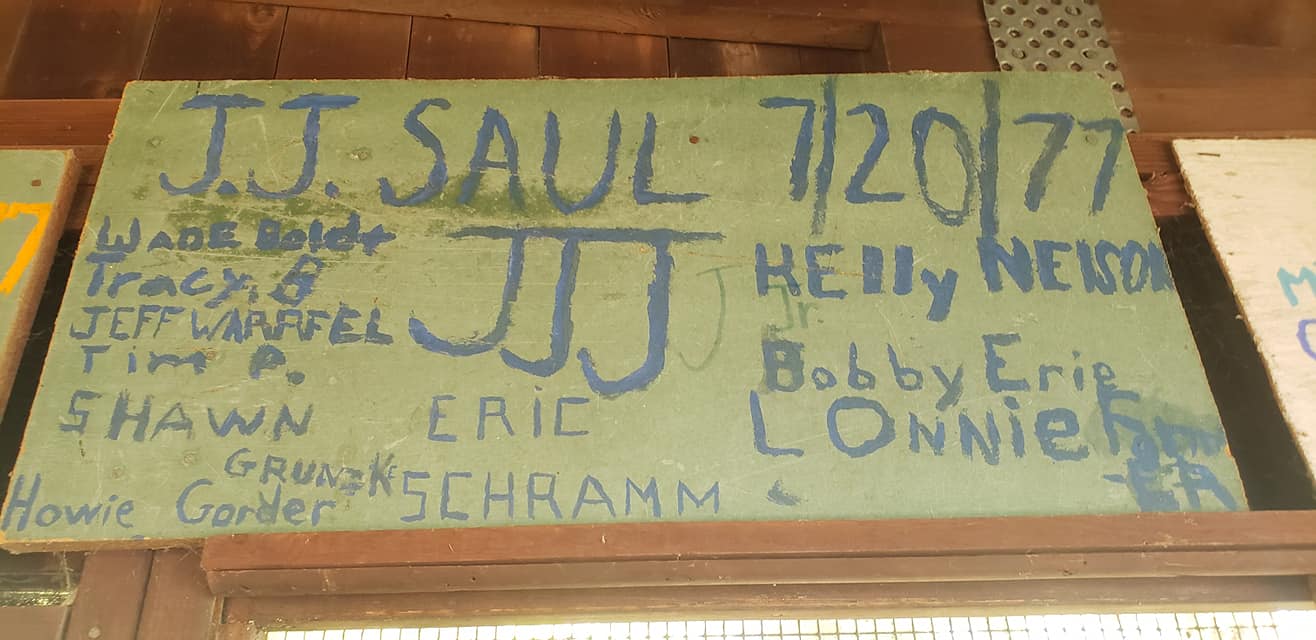 J.J. SAUL 7/20/77
WADE Boldt
Tracy. B
JEFF WARRFEL
Tim P.
SHAWN
GRUNZK
Howie Gorder
JJJ
J Jr.
ERIC
SCHRAMM
KElly NElSON
Bobby Erie
LONNie
-ER